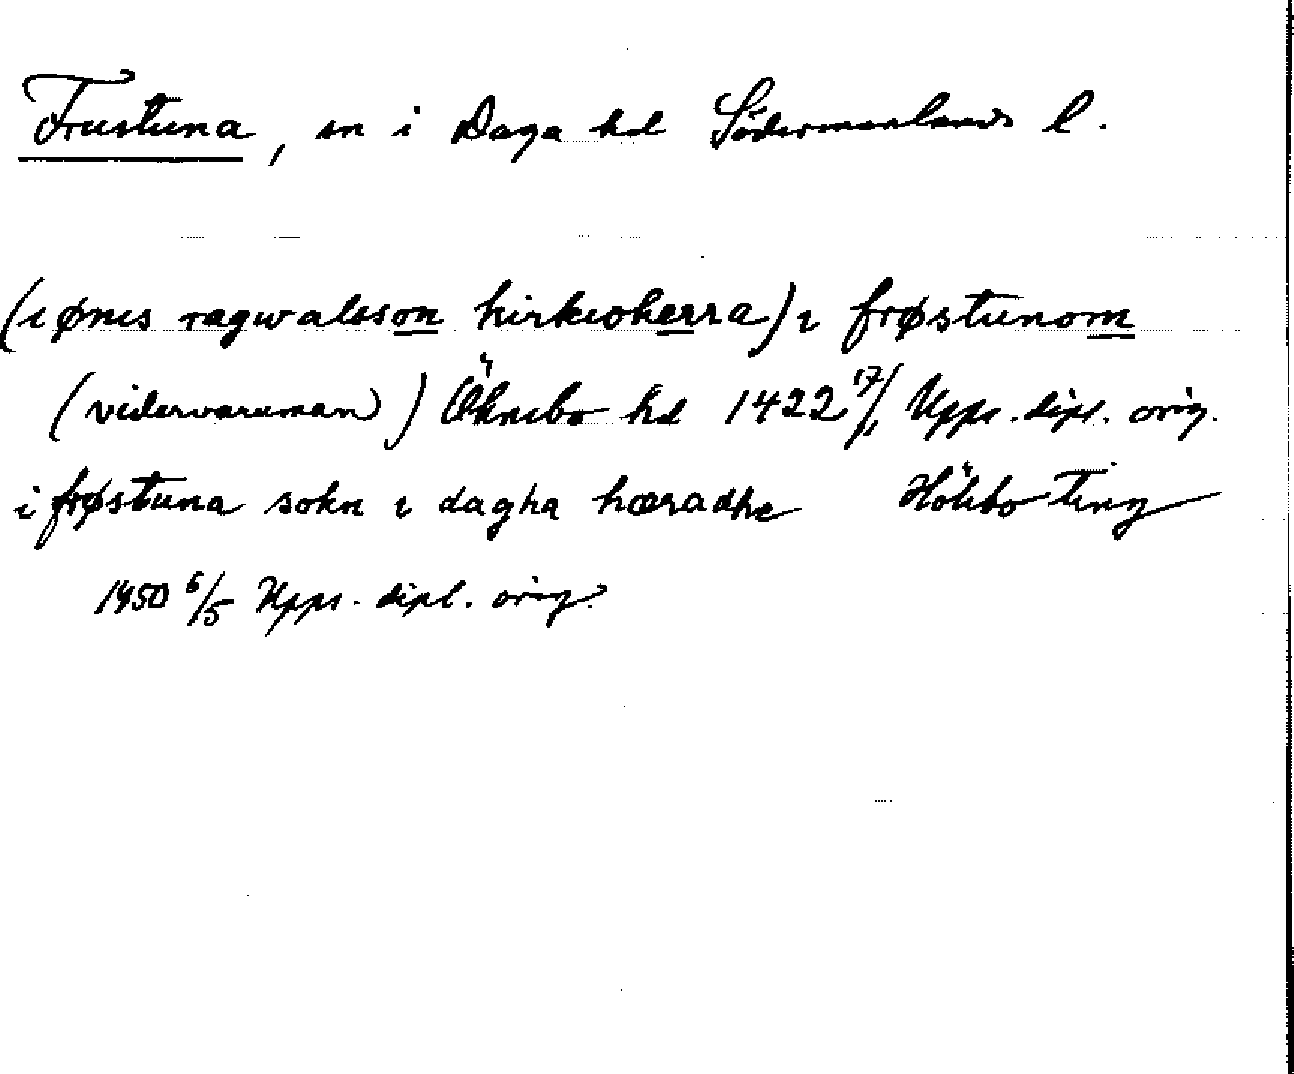 Frustuna, sn i Daga hd Södermanlands l.
(iønis ragwalsson kirkioherra) i frøstunom
(vidervaruman) Öknebo hd 1422 17/1 Upps. dipl. orig.
i frøstuna sokn i dagha hæradhe Hölebo ting
1450 6/5 Upps. dipl. orig.